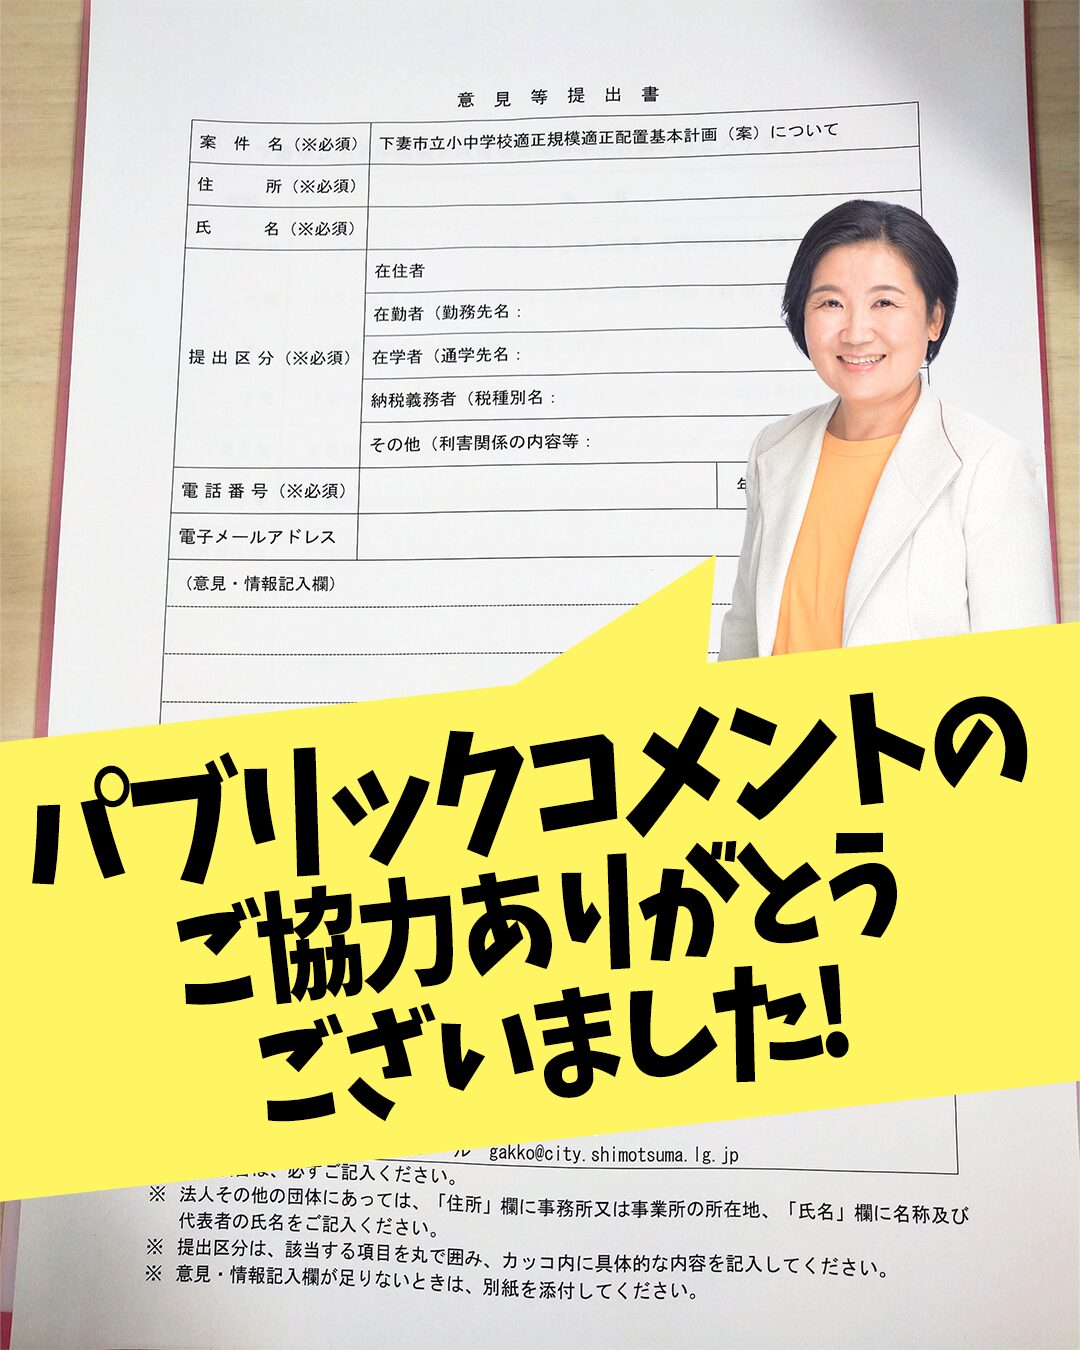 意見等提出書
案件名（※必須） 下妻市立小中学校適正規模適正配置基本計画（案）について
住所（※必須）
氏名（※必須）
提出区分（※必須）
在住者
在勤者（勤務先名：
在学者（通学先名：
納税義務者（税種別名：
その他（利害関係の内容等：
電話番号（※必須）
電子メールアドレス
（意見・情報記入欄）
パブリックコメントの
ご協力ありがとう
ございました!
gakko@city.shimotsuma.lg.jp
必ずご記入ください。
※ 法人その他の団体にあっては、「住所」欄に事務所又は事業所の所在地、「氏名」欄に名称及び
代表者の氏名をご記入ください。
※ 提出区分は、該当する項目を丸で囲み、カッコ内に具体的な内容を記入してください。
※ 意見・情報記入欄が足りないときは、別紙を添付してください。